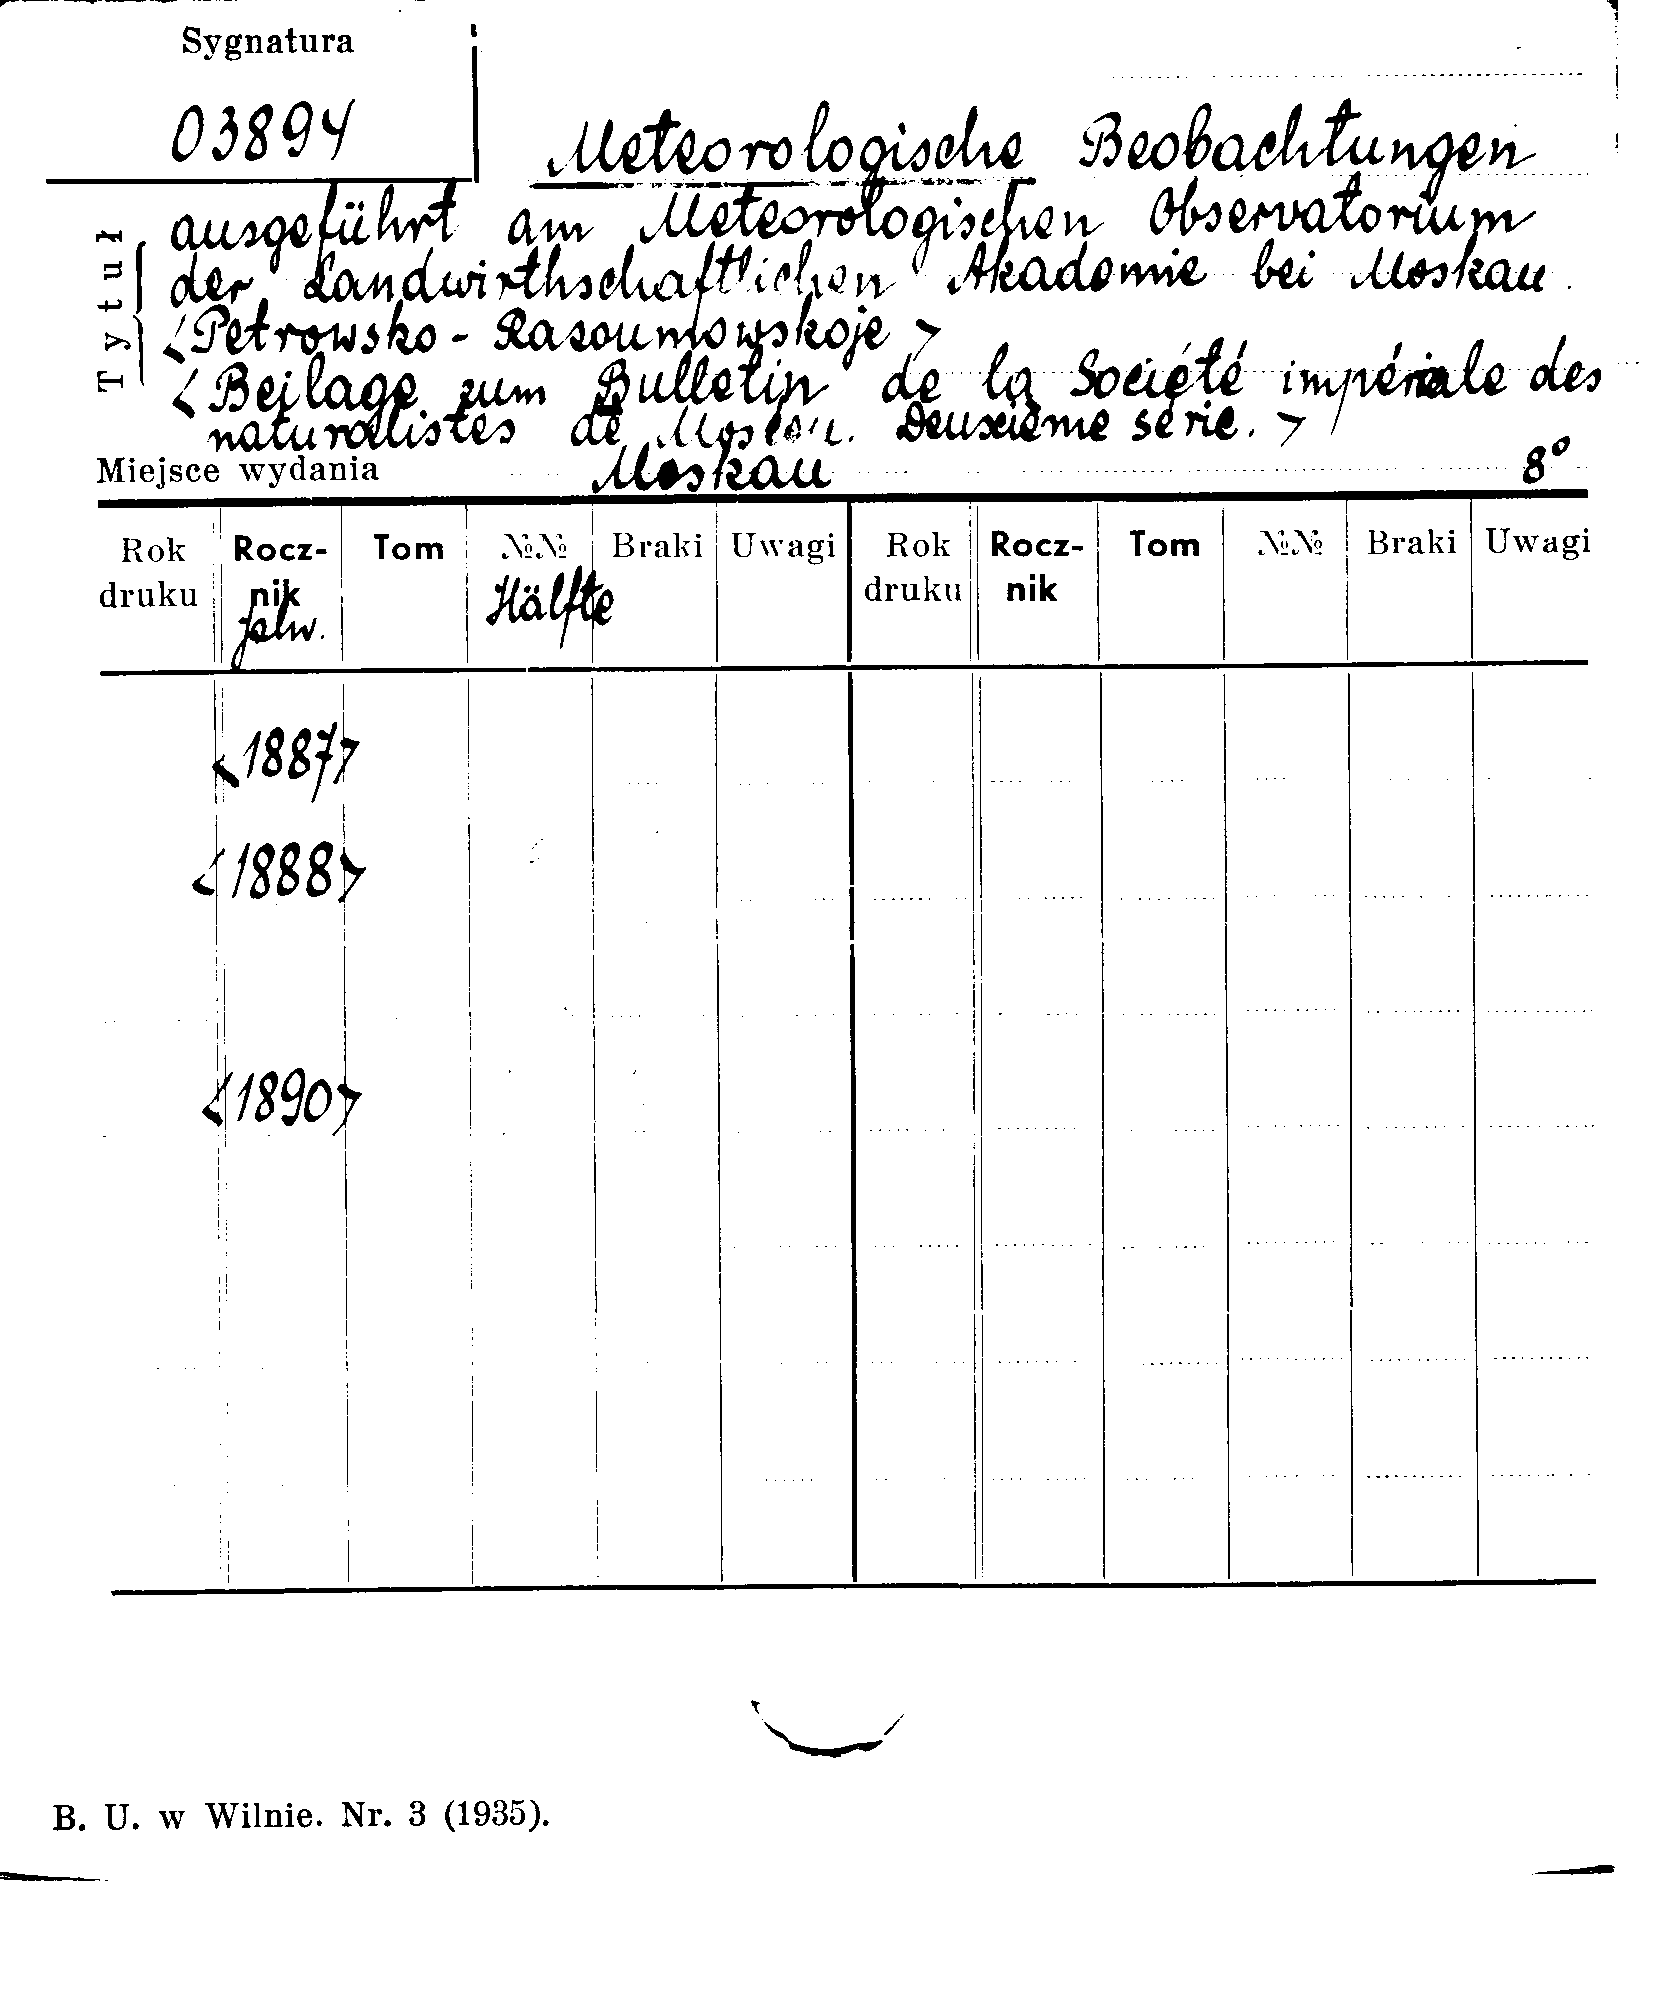 Sygnatura
03894
Meteorologische Beobachtungen
ausgeführt am Meteorologischen Observatorium
der Landwirthschaftlichen Akademie bei Moskau.
<Petrowsko-Rasoumowskoje>
<Beilage zum Bulletin de la Société impériale des
naturalistes de Moscou. Deuxième série.>
Tytuł
Miejsce wydania Moskau 8°
Rok druku Rocz-nik Tom №№ Braki Uwagi Rok druku Rocz-nik Tom №№ Braki Uwagi
Jahr. Hälfte
<1887>
<1888>
<1890>
B. U. w Wilnie. Nr. 3 (1935).